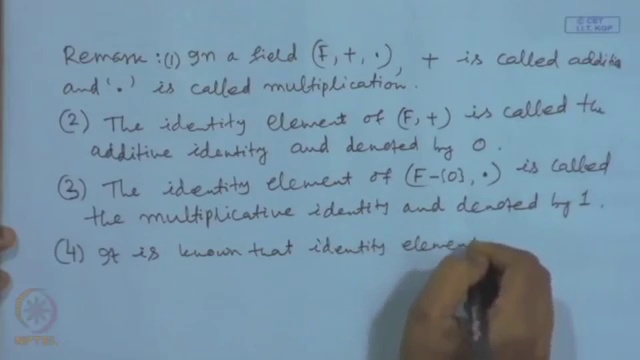 © CET
I.I.T. KGP
Remark : (1) In a field (F, +, ·), + is called additio
and '·' is called multiplication.
(2) The identity element of (F, +) is called the
additive identity and denoted by 0.
(3) The identity element of (F-{0}, ·) is called
the multiplicative identity and denoted by 1.
(4) It is known that identity elemen
NPTEL